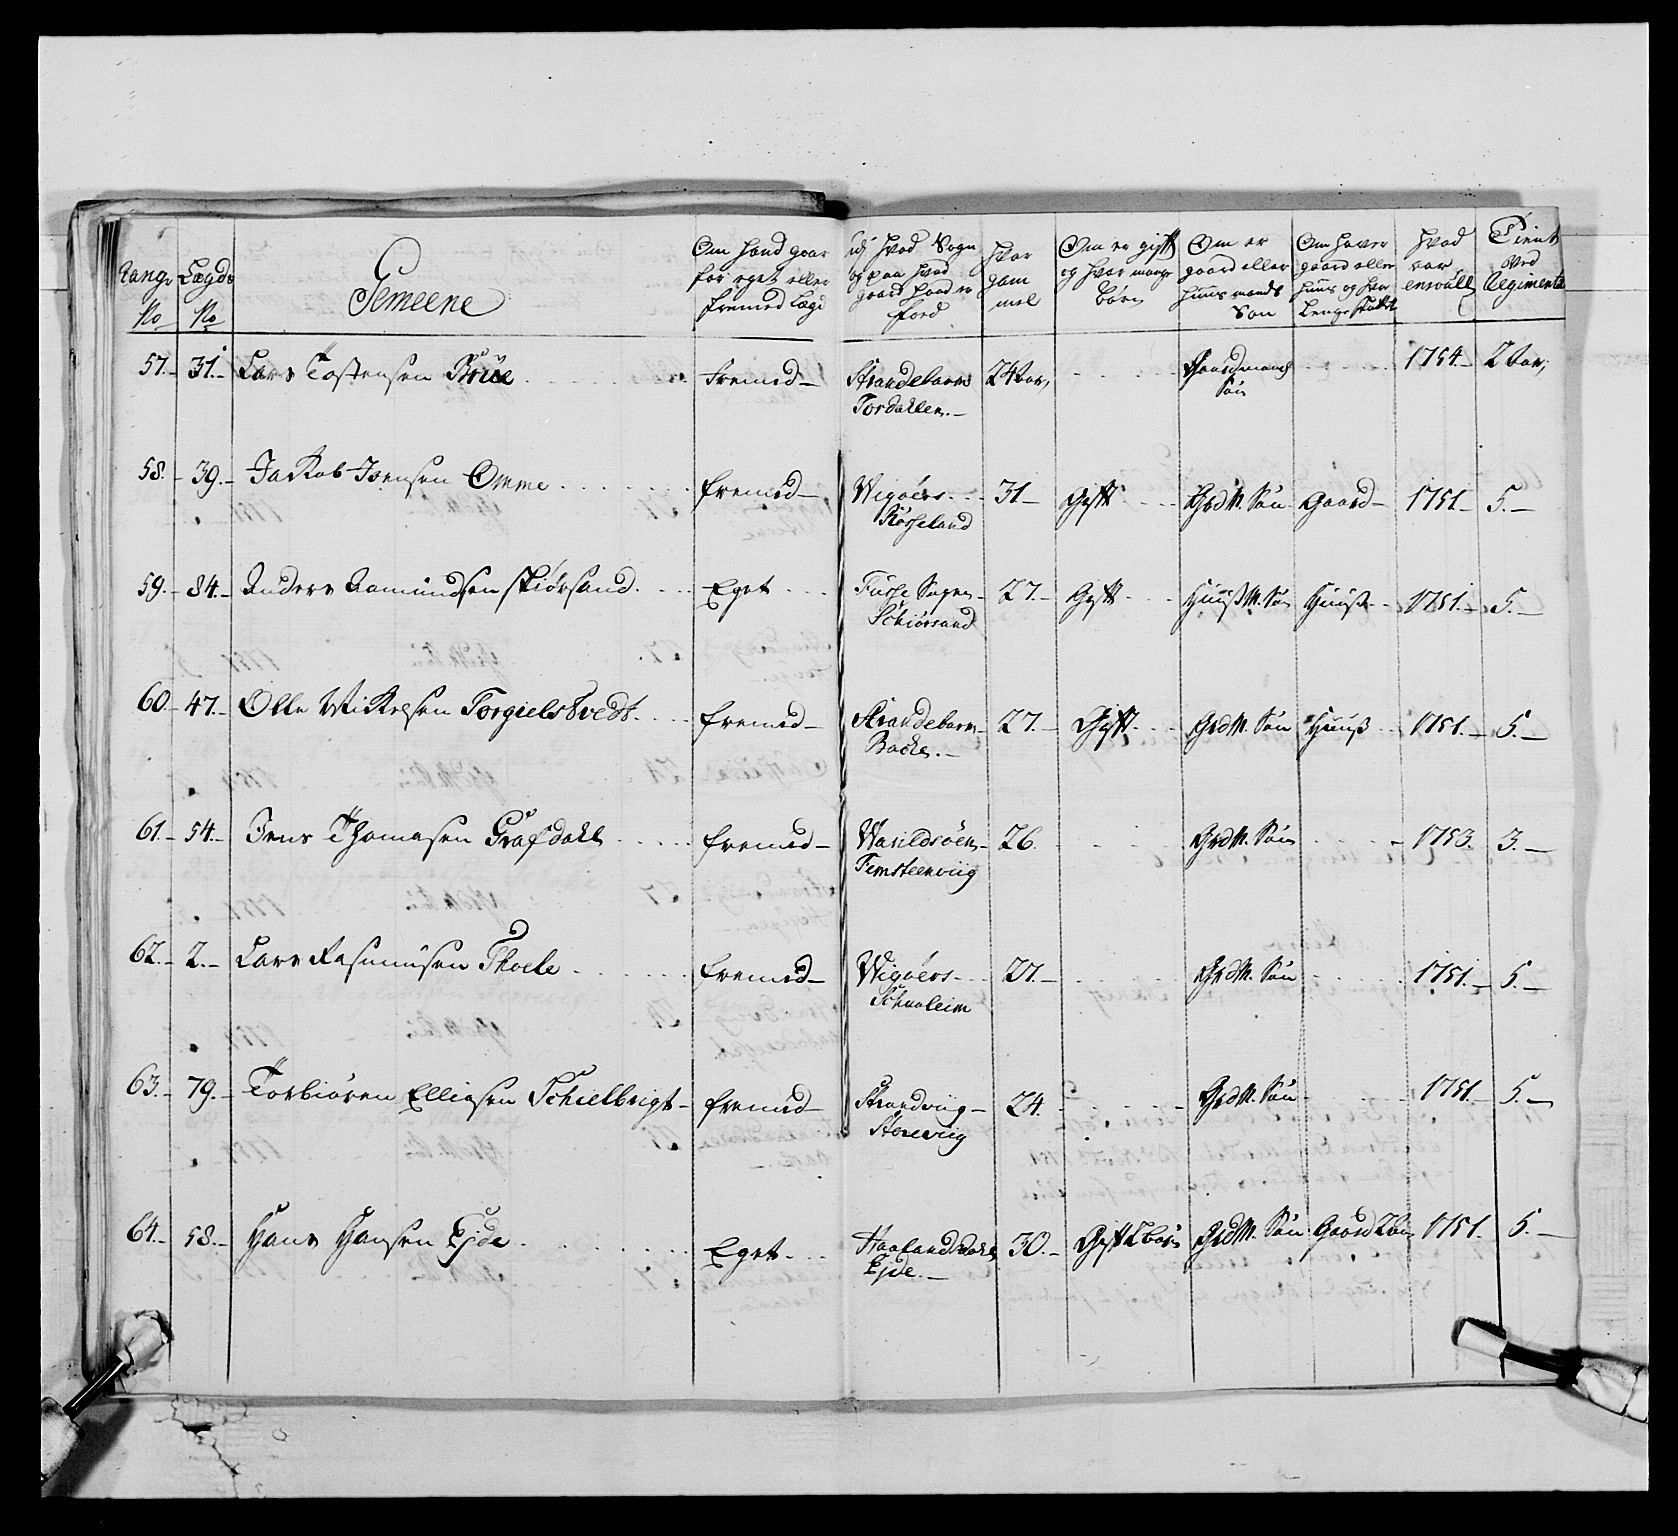 Rangs No
Lægds No
Gemeene
Om hand gaar for eget eller fremed Lægd
udj hvad Sogn og paa hvad gaard hand er føed
Hvor gammel
Om er gift og hvor mange børn
Om er gaard eller huus mands Søn
Om haver gaard eller huus og hvor
hvad aar enroull
Tient ved Regimentet
57. 31. Lars Tostensen Brüe fremed Strandebarm Tordahlen 24 aar, Gaardmands Søn 1754 2 aar,
58. 39. Jakob Ivensen Omme fremed Wigøers Røsseland 31 Gift GrdM. Søn Gaard 1751 5.
59. 84. Anders Aamundsen Skiørsand Eget Fuse Sogn Schiørsand 27. Gift HuusM. Søn Huus 1751. 5.
60. 47. Olle Wikesen Torgielstvedt fremed Strandebarm Backe 27. Gift GrdM. Søn Huus 1751. 5.
61. 54. Jens Thomesen Grafdahl fremed Warildsøen Femsteenviig 26. GrdM. Søn 1753. 3.
62. 2. Lars Rasmusen Thoele fremed Wigøers Schaaleim 27. GrdM. Søn 1751. 5.
63. 79. Torbiøren Elliasen Schielbrigt fremed Strandviig Storeviig 24. GrdM. Søn 1751. 5.
64. 58. Hans Hansen Ejde Eget Haalandsdahl Ejde 30. Gift 2 børn GrdM. Søn Gaard 1751. 5.